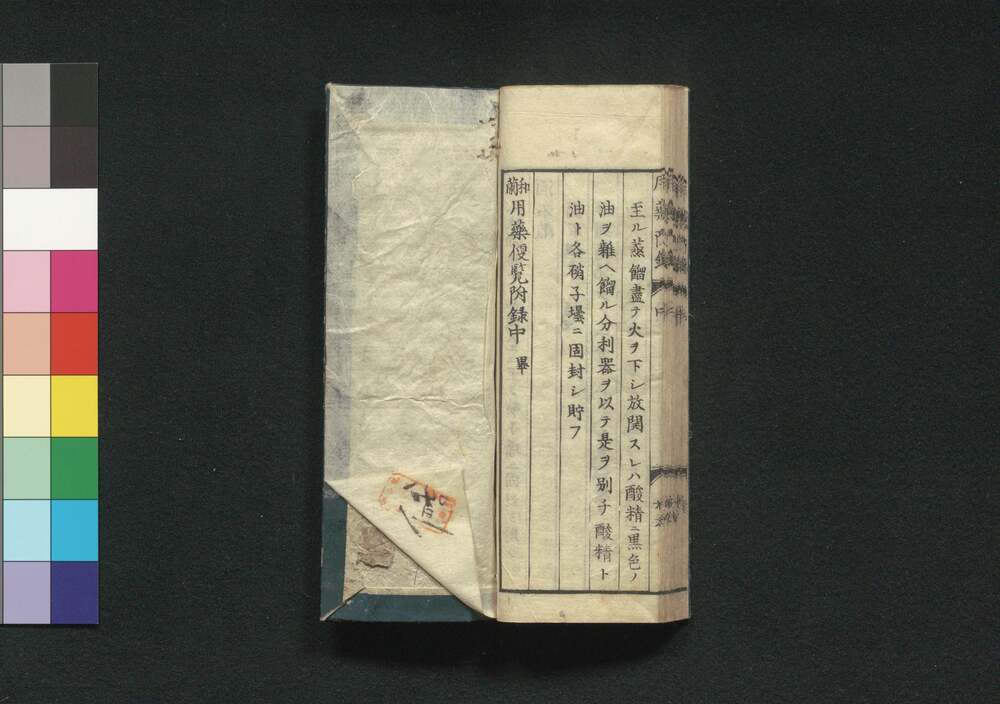 至ル蒸餾盡テ火ヲ下シ放開スレハ酸精ニ黒色ノ
油ヲ雜ヘ餾ル分利器ヲ以テ是ヲ別チ酸精ト
油ト各硝子壜ニ固封シ貯フ
和蘭用藥便覧附録中 畢